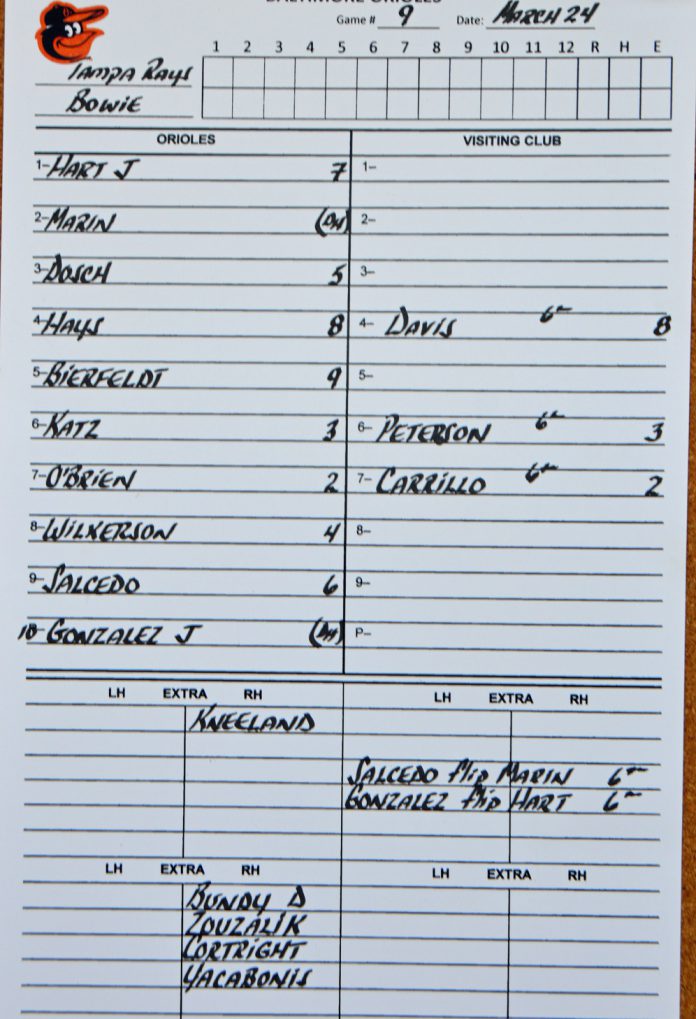 BALTIMORE ORIOLES
Game # 9 Date: MARCH 24
1 2 3 4 5 6 7 8 9 10 11 12 R H E
TAMPA RAYS
BOWIE
ORIOLES VISITING CLUB
1- HART J 7 1-
2- MARIN (DH) 2-
3- DOSCH 5 3-
4- HAYS 8 4- DAVIS 6th 8
5- BIERFELDT 9 5-
6- KATZ 3 6- PETERSON 6th 3
7- O'BRIEN 2 7- CARRILLO 6th 2
8- WILKERSON 4 8-
9- SALCEDO 6 9-
10 GONZALEZ J (DH) P-
LH EXTRA RH LH EXTRA RH
KNEELAND
SALCEDO flip MARIN 6th
GONZALEZ flip HART 6th
LH EXTRA RH LH EXTRA RH
BUNDY D
ZOUZALIK
CORTRIGHT
YACABONIS